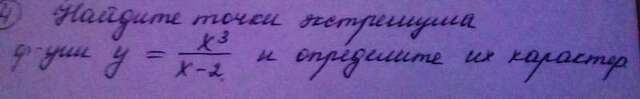 4) Найдите точки экстремума
ф-уии y = x³/(x-2) и определите их характер